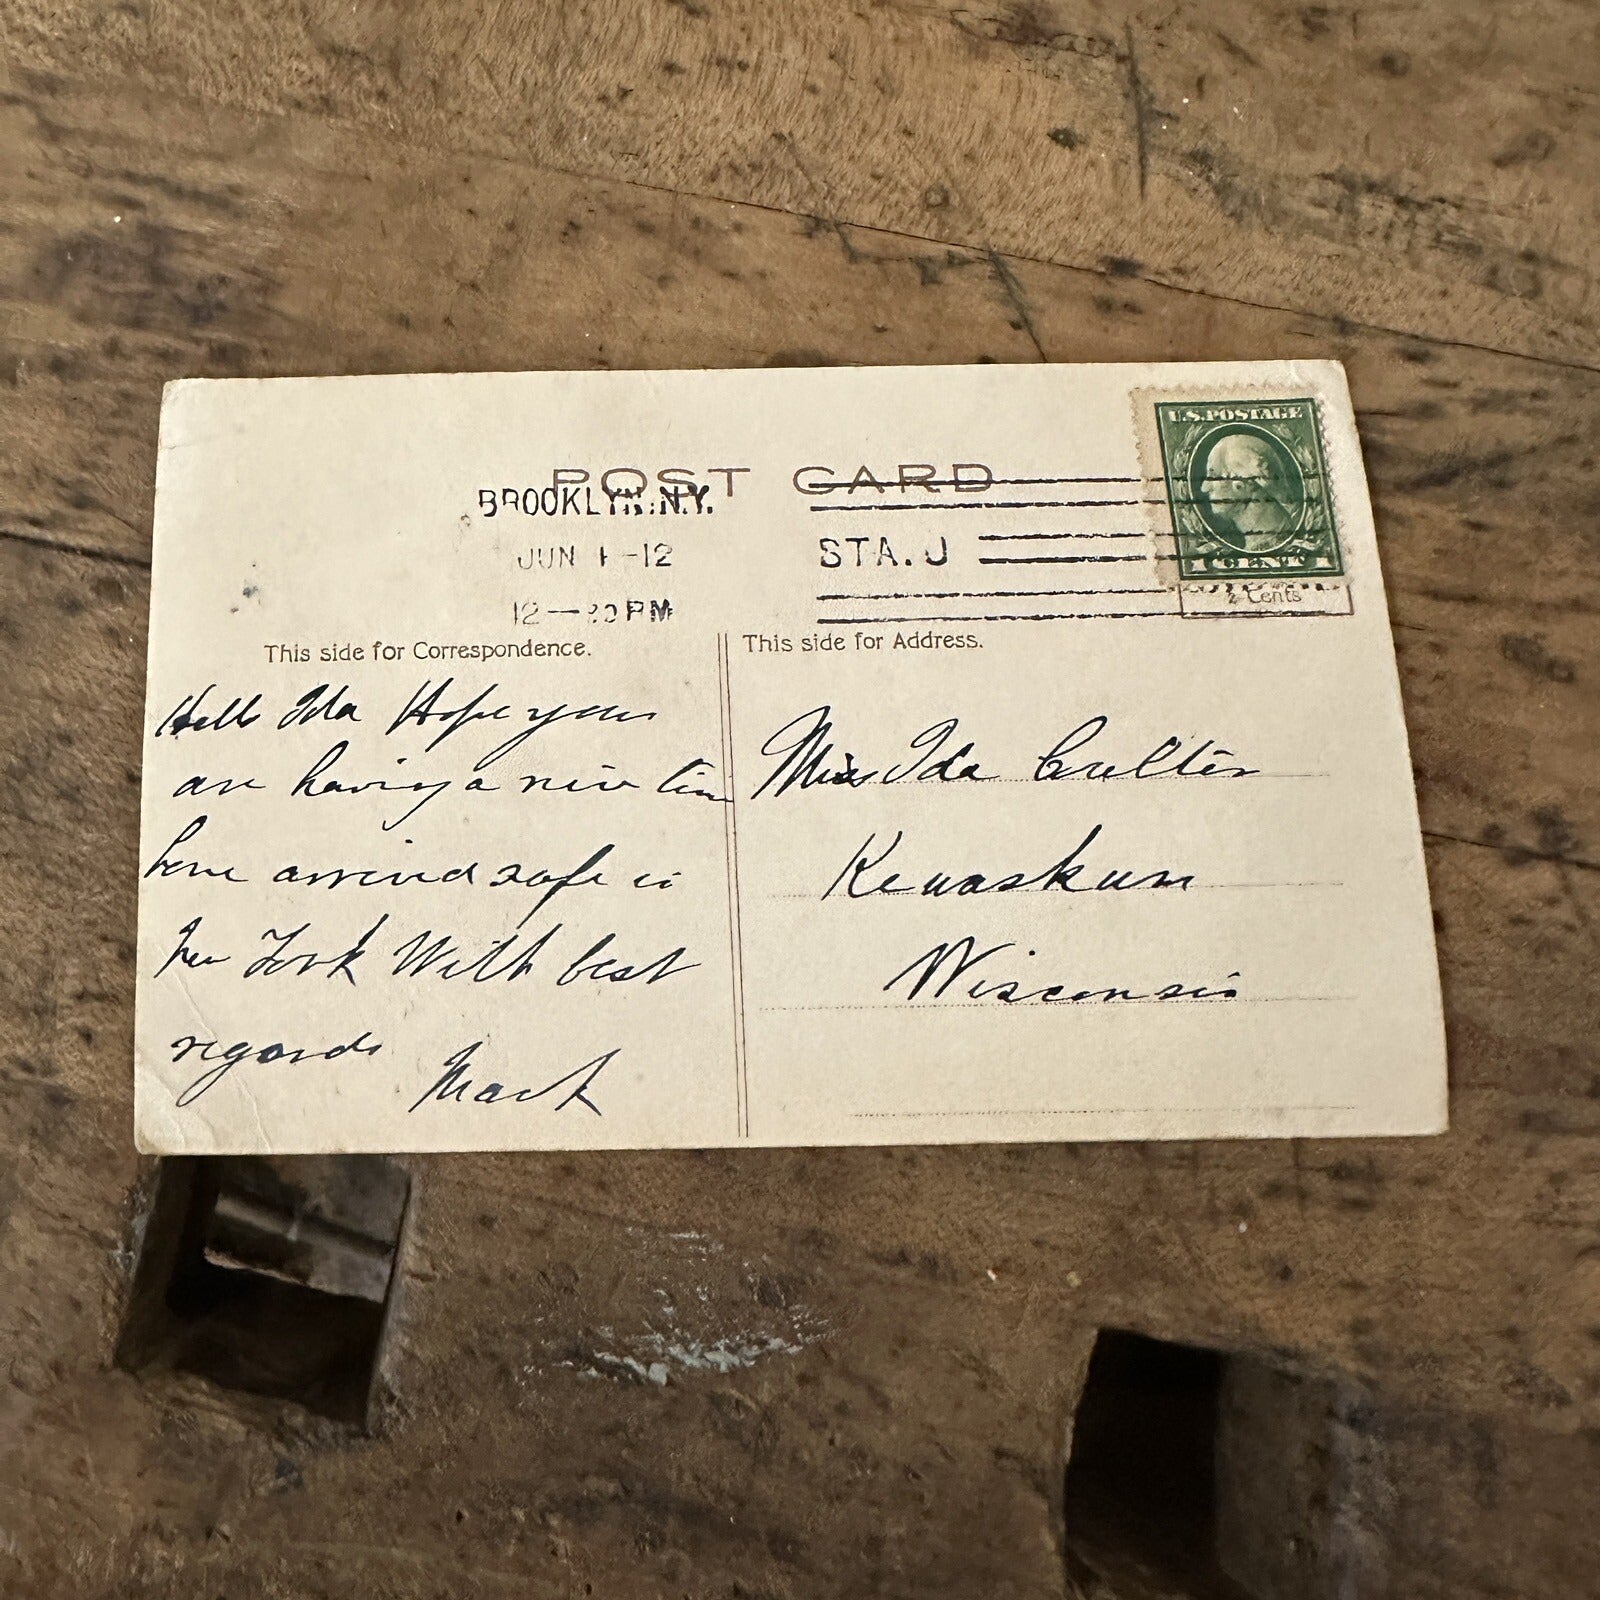 U.S. POSTAGE
1 CENT 1
Cents
POST CARD
BROOKLYN. N.Y.
JUN 1 -12
STA. J
12 — 30 PM
This side for Correspondence.
This side for Address.
Hello Ida Hope you
are having a nice time
have arrived safe in
New York With best
regards
Mack
Miss Ida
Kewaskum
Wisconsin